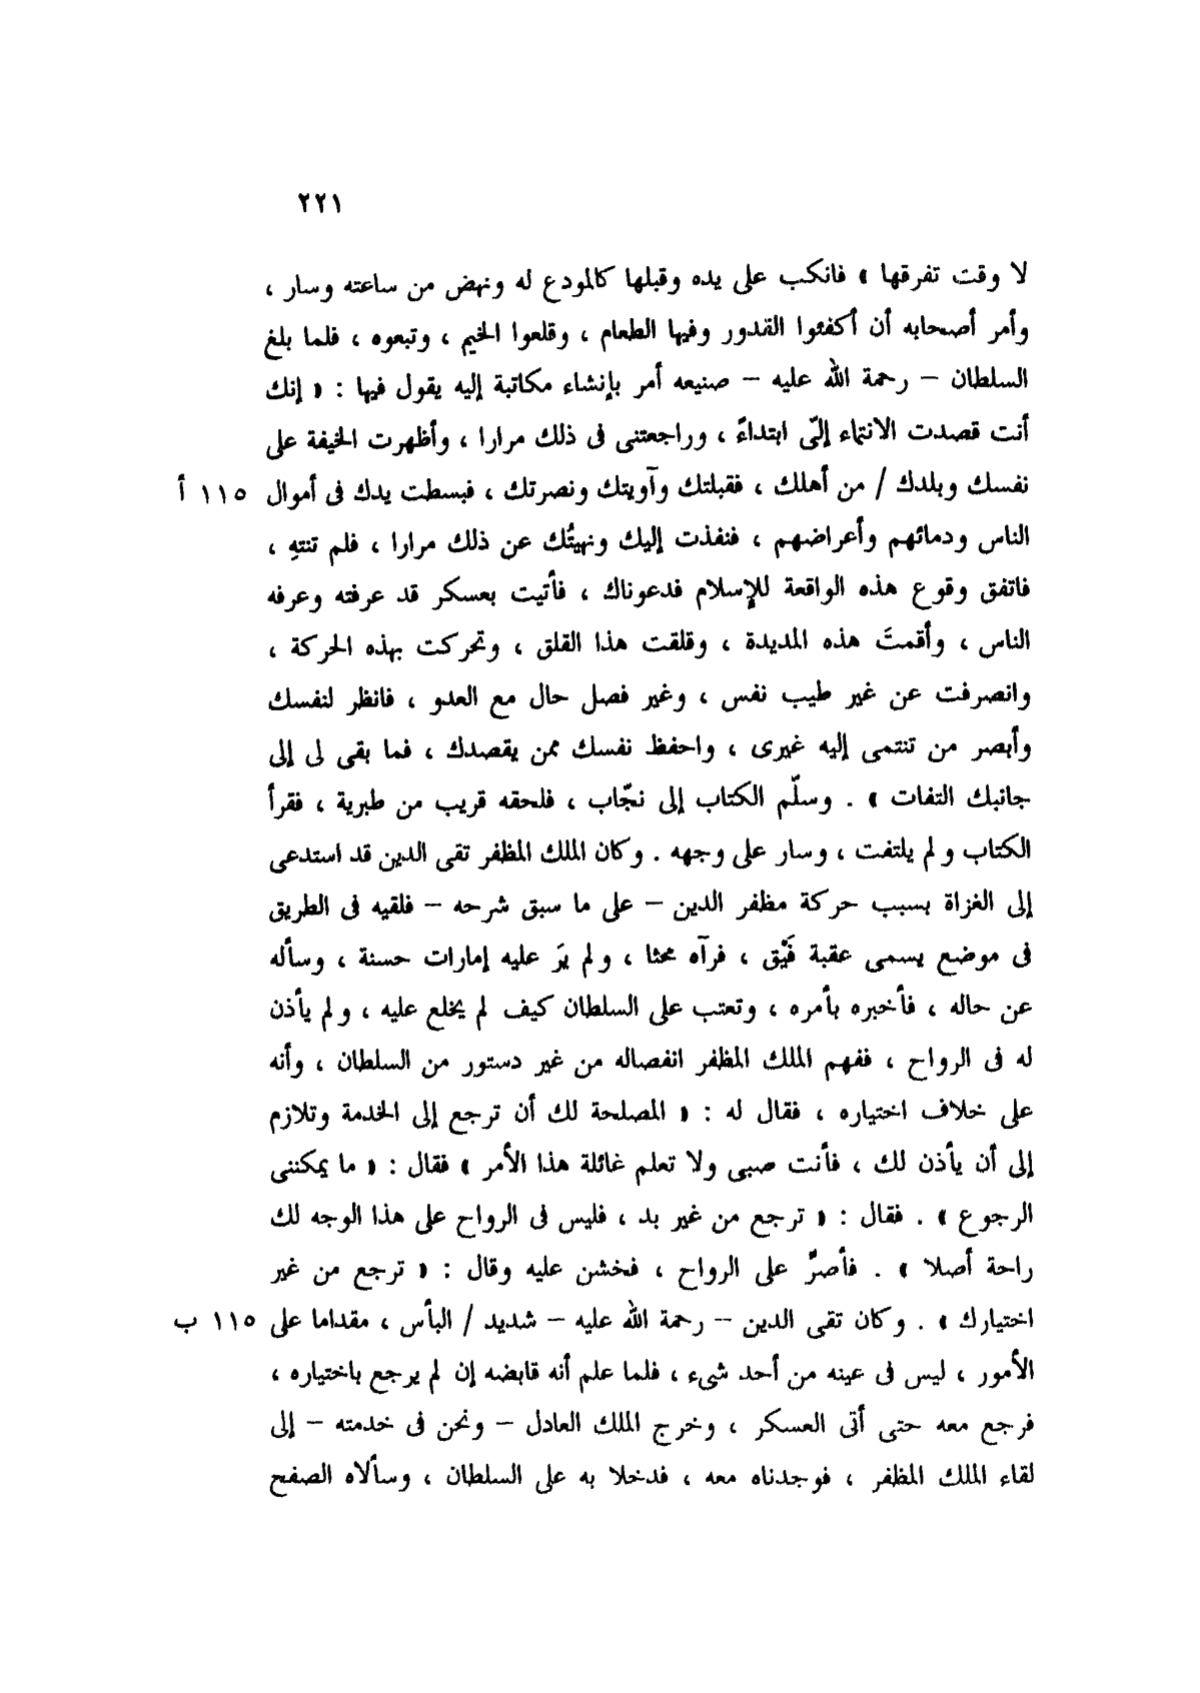 ٢٢١
لا وقت تفرقها » فانكب على يده وقبلها كالمودع له ونهض من ساعته وسار ،
وأمر أصحابه أن أكفئوا القدور وفيها الطعام ، وقلعوا الخيم ، وتبعوه ، فلما بلغ
السلطان – رحمة الله عليه – صنيعه أمر بإنشاء مكاتبة إليه يقول فيها : « إنك
أنت قصدت الانتماء إلىّ ابتداءً ، وراجعتنى فى ذلك مرارا ، وأظهرت الخيفة على
نفسك وبلدك / من أهلك ، فقبلتك وآويتك ونصرتك ، فبسطت يدك فى أموال ١١٥ أ
الناس ودمائهم وأعراضهم ، فنفذت إليك ونهيتُك عن ذلك مرارا ، فلم تنتهِ ،
فاتفق وقوع هذه الواقعة للإسلام فدعوناك ، فأتيت بعسكر قد عرفته وعرفه
الناس ، وأقمتَ هذه المديدة ، وقلقت هذا القلق ، وتحركت بهذه الحركة ،
وانصرفت عن غير طيب نفس ، وغير فصل حال مع العدو ، فانظر لنفسك
وأبصر من تنتمى إليه غيرى ، واحفظ نفسك ممن يقصدك ، فما بقى لى إلى
جانبك التفات » . وسلّم الكتاب إلى نجّاب ، فلحقه قريب من طبرية ، فقرأ
الكتاب ولم يلتفت ، وسار على وجهه . وكان الملك المظفر تقى الدين قد استدعى
إلى الغزاة بسبب حركة مظفر الدين – على ما سبق شرحه – فلقيه فى الطريق
فى موضع يسمى عقبة فَيْق ، فرآه محثا ، ولم يرَ عليه إمارات حسنة ، وسأله
عن حاله ، فأخبره بأمره ، وتعتب على السلطان كيف لم يخلع عليه ، ولم يأذن
له فى الرواح ، ففهم الملك المظفر انفصاله من غير دستور من السلطان ، وأنه
على خلاف اختياره ، فقال له : « المصلحة لك أن ترجع إلى الخدمة وتلازم
إلى أن يأذن لك ، فأنت صبى ولا تعلم غائلة هذا الأمر » فقال : « ما يمكننى
الرجوع » . فقال : « ترجع من غير بد ، فليس فى الرواح على هذا الوجه لك
راحة أصلا » . فأصرَّ على الرواح ، فخشن عليه وقال : « ترجع من غير
اختيارك » . وكان تقى الدين – رحمة الله عليه – شديد / البأس ، مقداما على ١١٥ ب
الأمور ، ليس فى عينه من أحد شىء ، فلما علم أنه قابضه إن لم يرجع باختياره ،
فرجع معه حتى أتى العسكر ، وخرج الملك العادل – ونحن فى خدمته – إلى
لقاء الملك المظفر ، فوجدناه معه ، فدخلا به على السلطان ، وسألاه الصفح